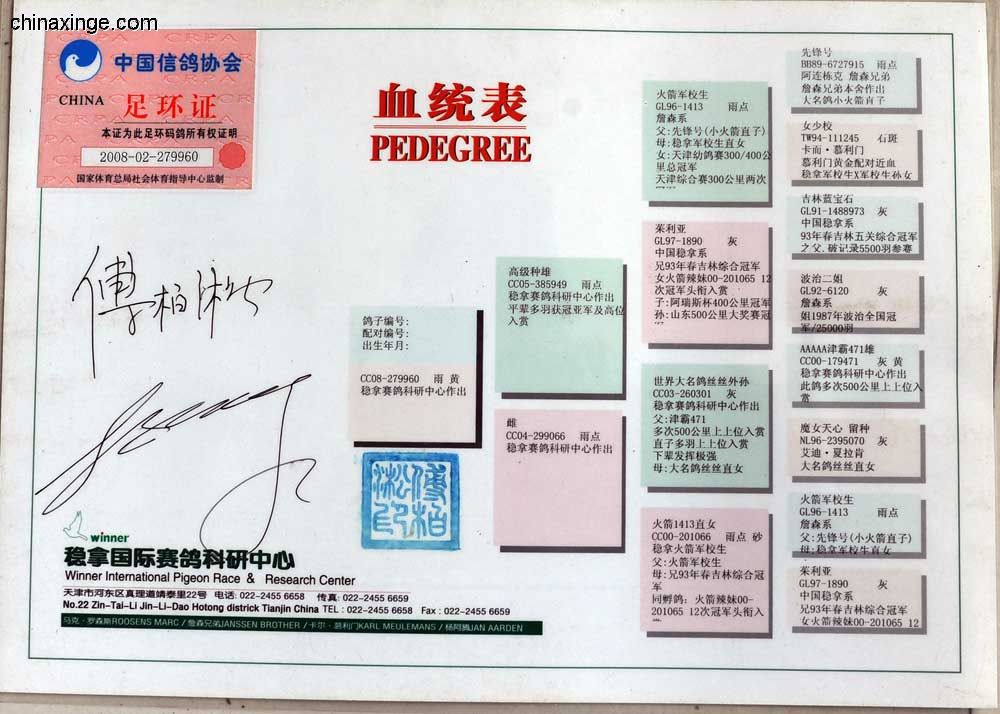 chinaxinge.com
中国信鸽协会
CHINA 足环证
本证为此足环码鸽所有权证明
2008-02-279960
国家体育总局社会体育指导中心监制
血统表
PEDEGREE
傅柏淞
鸽子编号:
配对编号:
出生年月:
CC08-279960 雨 黄
稳拿赛鸽科研中心作出
高级种雄
CC05-385949 雨点
稳拿赛鸽科研中心作出
平辈多羽获冠亚军及高位
入赏
雌
CC04-299066 雨点
稳拿赛鸽科研中心作出
火箭军校生
GL96-1413 雨点
詹森系
父:先锋号(小火箭直子)
母:稳拿军校生直女
女:天津幼鸽赛300/400公
里总冠军
天津综合赛300公里两次
茱利亚
GL97-1890 灰
中国稳拿系
兄93年春吉林综合冠军
女火箭辣妹00-201065 12
次冠军头衔入赏
子:阿瑞斯杯400公里冠军
孙:山东500公里大奖赛冠
世界大名鸽丝丝外孙
CC03-260301 灰
稳拿赛鸽科研中心作出
父:津霸471
多次500公里上上位入赏
直子多羽上上位入赏
下辈发挥极强
母:大名鸽丝丝直女
火箭1413直女
CC00-201066 雨点 砂
稳拿火箭军校生
父:火箭军校生
母:兄93年春吉林综合冠
军
同孵鸽: 火箭辣妹00-
201065 12次冠军头衔入
先锋号
BB89-6727915 雨点
阿连栋克 詹森兄弟
詹森兄弟本舍作出
大名鸽小火箭直子
女少校
TW94-111245 石斑
卡而·慕利门
慕利门黄金配对近血
稳拿军校生X军校生孙女
吉林蓝宝石
GL91-1488973 灰
中国稳拿系
93年春吉林五关综合冠军
之父.破记录5500羽参赛
波治二姐
GL92-6120 灰
詹森系
姐1987年波治全国冠
军/25000羽
AAAAA津霸471雄
CC00-179471 灰 黄
此鸽多次500公里上上位入
赏
魔女天心 留种
NL96-2395070 灰
艾迪·夏拉肯
大名鸽丝丝直女
火箭军校生
GL96-1413 雨点
詹森系
父:先锋号(小火箭直子)
母:稳拿军校生直女
茱利亚
GL97-1890 灰
中国稳拿系
兄93年春吉林综合冠军
女火箭辣妹00-201065 12
傅柏淞印
winner
稳拿国际赛鸽科研中心
Winner International Pigeon Race & Research Center
天津市河东区真理道靖泰里22号 电话: 022-2455 6658 传真: 022-2455 6659
No.22 Zin-Tai-Li Jin-Li-Dao Hotong districk Tianjin China TEL : 022-2455 6658 Fax : 022-2455 6659
马克·罗森斯ROOSENS MARC / 詹森兄弟JANSSEN BROTHER / 卡尔·慕利门KARL MEULEMANS / 杨阿腾JAN AARDEN